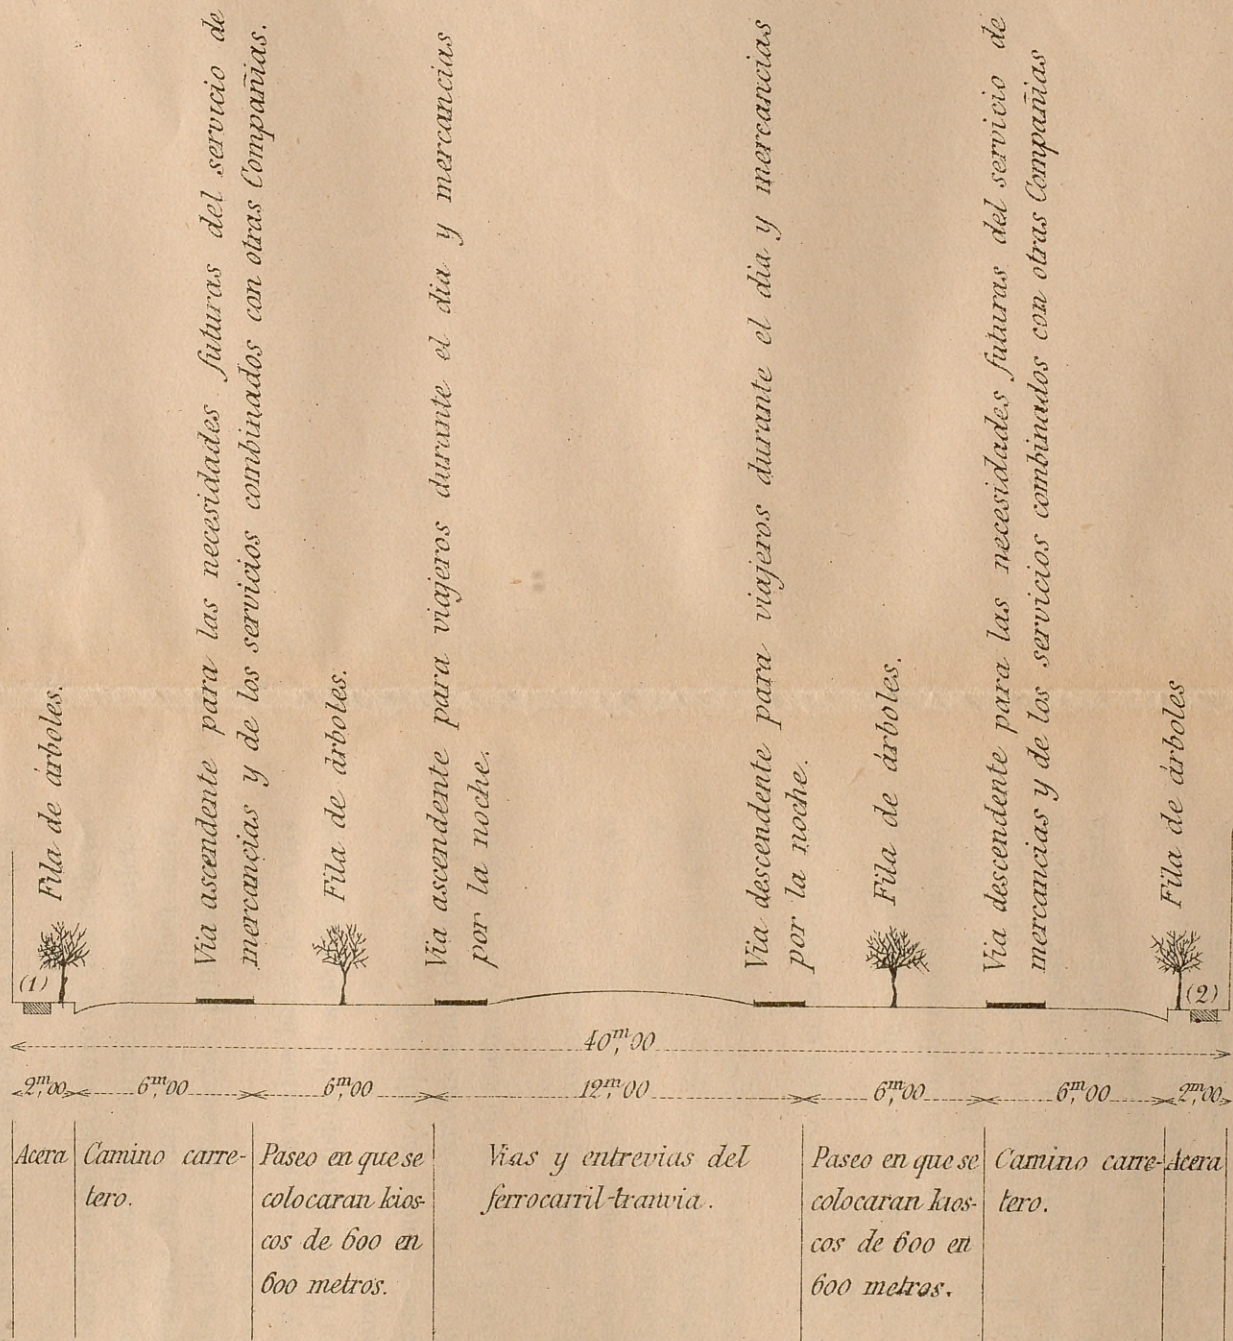 Fila de árboles.
Via ascendente para las necesidades futuras del servicio de
mercancias y de los servicios combinados con otras Compañias.
Fila de árboles.
Via ascendente para viajeros durante el dia y mercancias
por la noche.
Via descendente para viajeros durante el dia y mercancias
por la noche.
Fila de árboles.
Via descendente para las necesidades futuras del servicio de
mercancias y de los servicios combinados con otras Compañias
Fila de árboles
(1)
(2)
40,m00
2,m00 6,m00 6,m00 12,m00 6,m00 6,m00 2,m00
Acera
Camino carre-
tero.
Paseo en que se
colocaran kios-
cos de 600 en
600 metros.
Vias y entrevias del
ferrocarril-tranvia.
Paseo en que se
colocaran kios-
cos de 600 en
600 metros.
Camino carre-
tero.
Acera